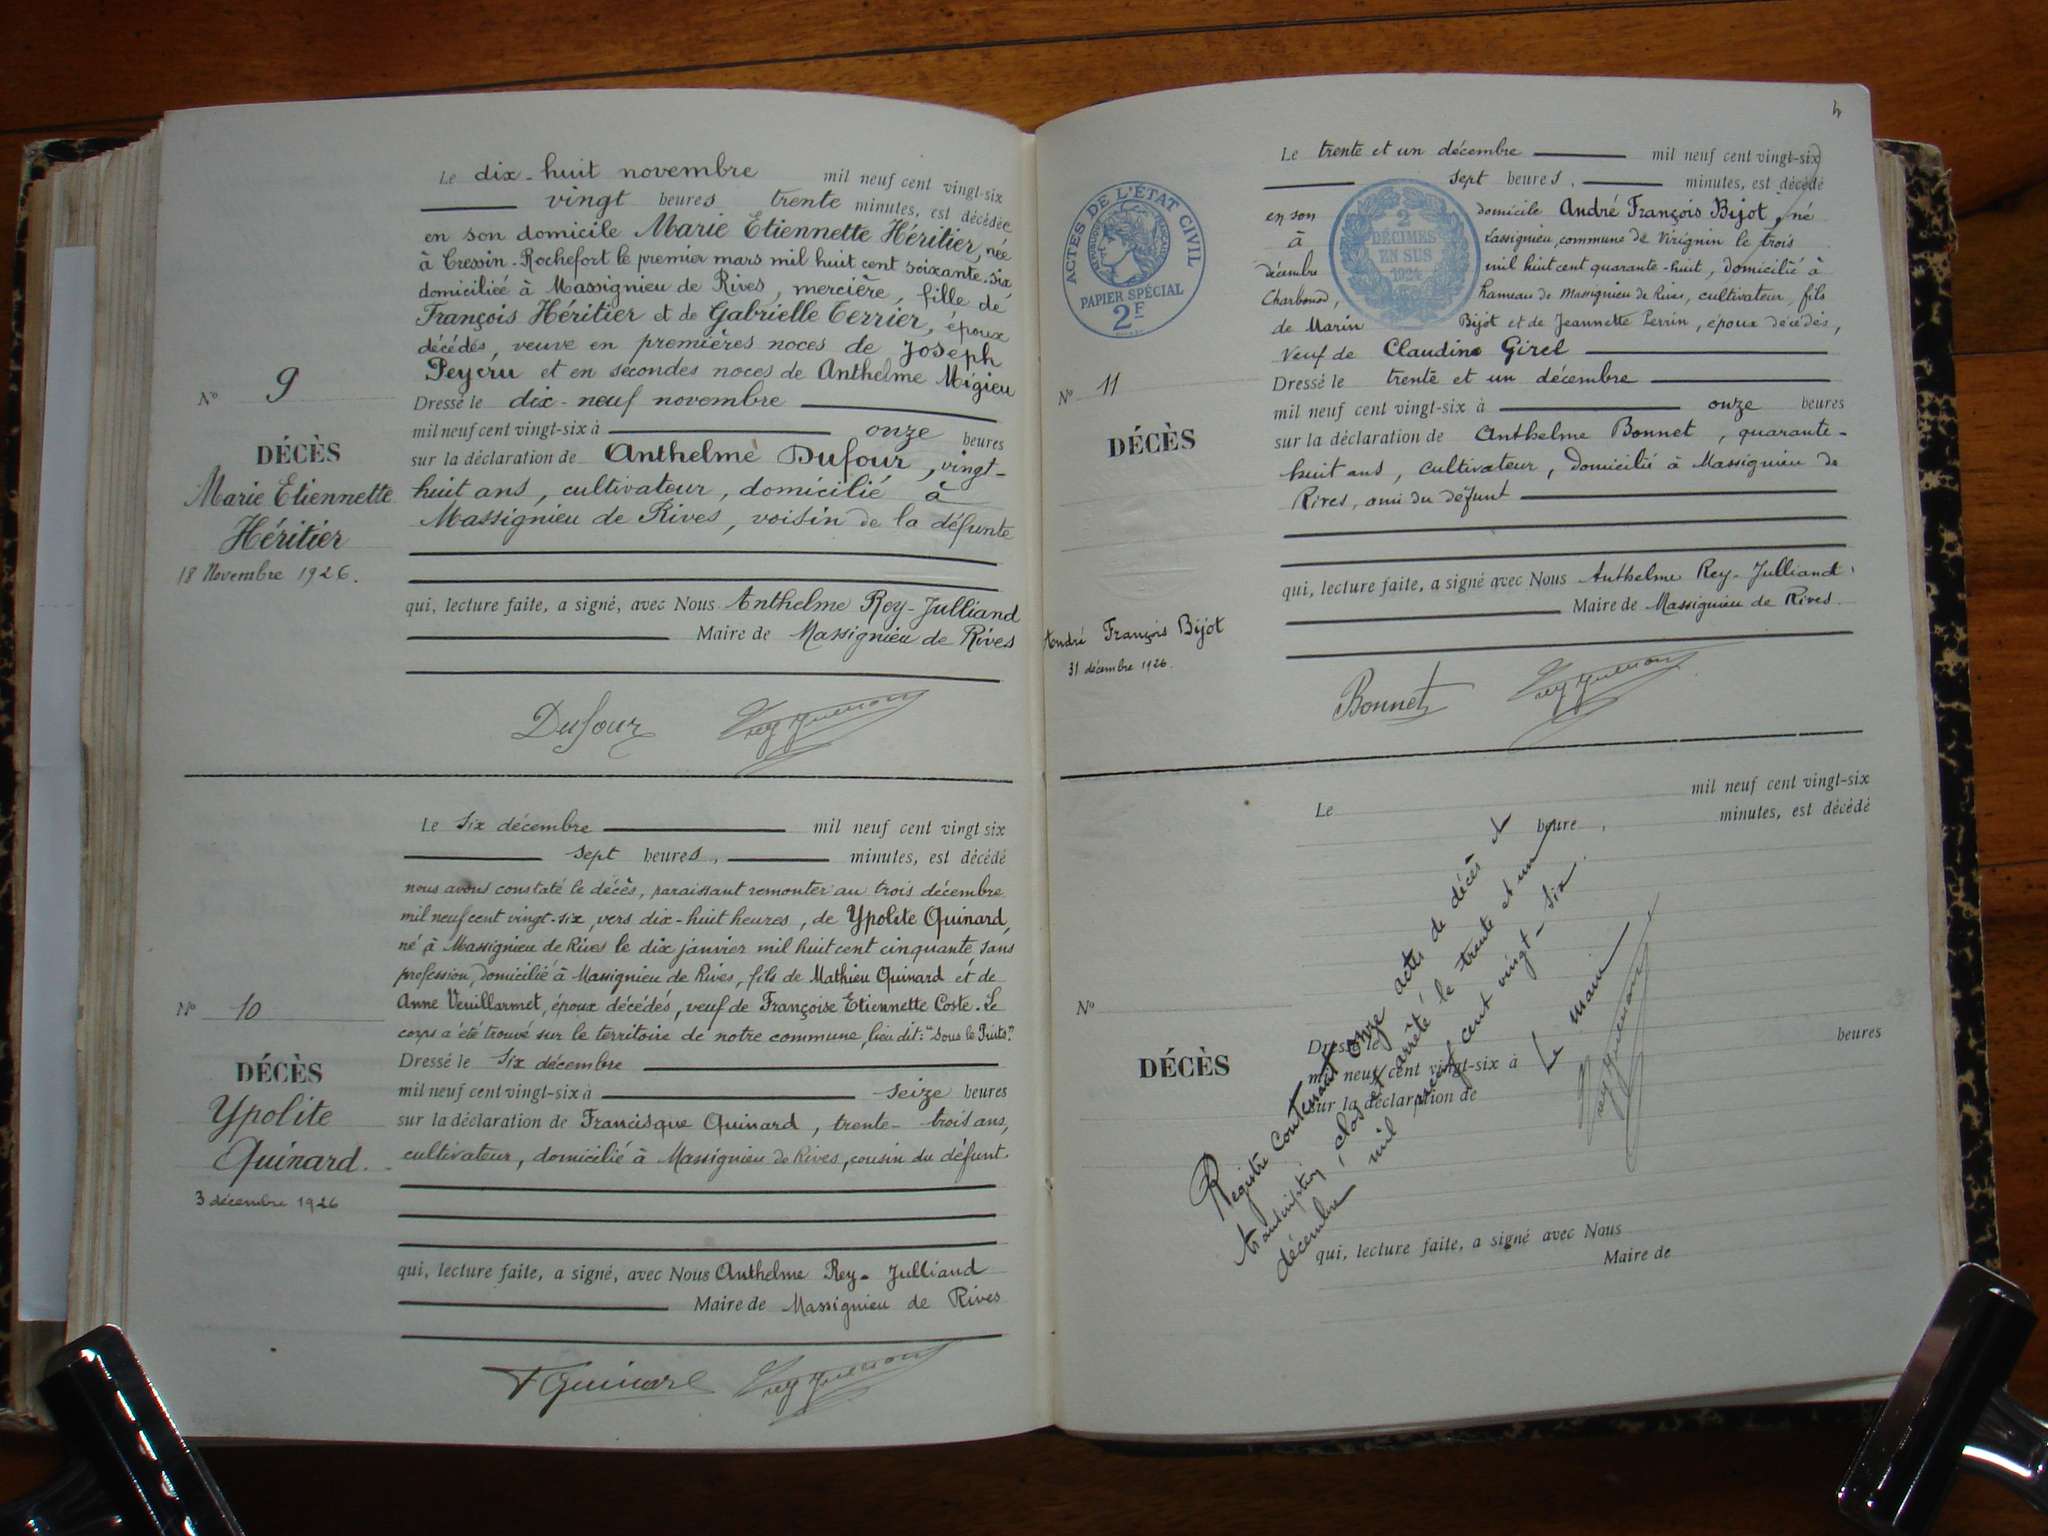 Le dix-huit novembre mil neuf cent vingt-six
vingt heures trente minutes, est décédée
en son domicile Marie Etiennette Héritier, née
à Cressin-Rochefort le premier mars mil huit cent soixante-six
domiciliée à Massignieu de Rives, mercière, fille de
François Héritier et de Gabrielle Terrier, époux
décédés, veuve en premières noces de Joseph
Peycru et en secondes noces de Anthelme Migieu
Nº 9
Dressé le dix-neuf novembre
mil neuf cent vingt-six à onze heures
DÉCÈS
sur la déclaration de Anthelme Dufour, vingt-
Marie Etiennette
huit ans, cultivateur, domicilié à
Héritier
Massignieu de Rives, voisin de la défunte
18 Novembre 1926.
qui, lecture faite, a signé, avec Nous Anthelme Rey-Julliand
Maire de Massignieu de Rives
Dufour
Le six décembre mil neuf cent vingt six
sept heures, minutes, est décédé
nous avons constaté le décès, paraissant remonter au trois décembre
mil neuf cent vingt-six, vers dix-huit heures, de Ypolite Quinard,
né à Massignieu de Rives le dix janvier mil huit cent cinquante, sans
profession, domicilié à Massignieu de Rives, fils de Mathieu Quinard et de
Nº 10
Anne Veuillarmet, époux décédés, veuf de Françoise Etiennette Coste. Le
corps a été trouvé sur le territoire de notre commune, lieu dit: "Sous le Puits".
DÉCÈS
Dressé le six décembre
Ypolite
mil neuf cent vingt-six à seize heures
Quinard.
sur la déclaration de Francisque Quinard, trente-trois ans,
3 décembre 1926
cultivateur, domicilié à Massignieu de Rives, cousin du défunt.
qui, lecture faite, a signé, avec Nous Anthelme Rey-Julliand
Maire de Massignieu de Rives
F Quinard
4
ACTES DE L'ÉTAT CIVIL
RÉPUBLIQUE FRANÇAISE
PAPIER SPÉCIAL
2F
2
DÉCIMES
EN SUS
1924
Le trente et un décembre mil neuf cent vingt-six
sept heures, minutes, est décédé
en son domicile André François Bijot, né
à Lassignieu, commune de Virignin le trois
décembre mil huit cent quarante-huit, domicilié à
Charbonod, hameau de Massignieu de Rives, cultivateur, fils
de Marin Bijot et de Jeannette Perrin, époux décédés,
veuf de Claudine Girel
Nº 11
Dressé le trente et un décembre
mil neuf cent vingt-six à onze heures
DÉCÈS
sur la déclaration de Anthelme Bonnet, quarante-
huit ans, cultivateur, domicilié à Massignieu de
Rives, ami du défunt
qui, lecture faite, a signé avec Nous Anthelme Rey-Julliand
Maire de Massignieu de Rives
André François Bijot
31 décembre 1926.
Bonnet
Le mil neuf cent vingt-six
heure, minutes, est décédé
Nº
DÉCÈS
Dressé le
mil neuf cent vingt-six à heures
sur la déclaration de
qui, lecture faite, a signé avec Nous
Maire de
Registre contenant onze actes de décès et
transcription, clos et arrêté le trente et un
décembre mil neuf cent vingt-six.
Le maire